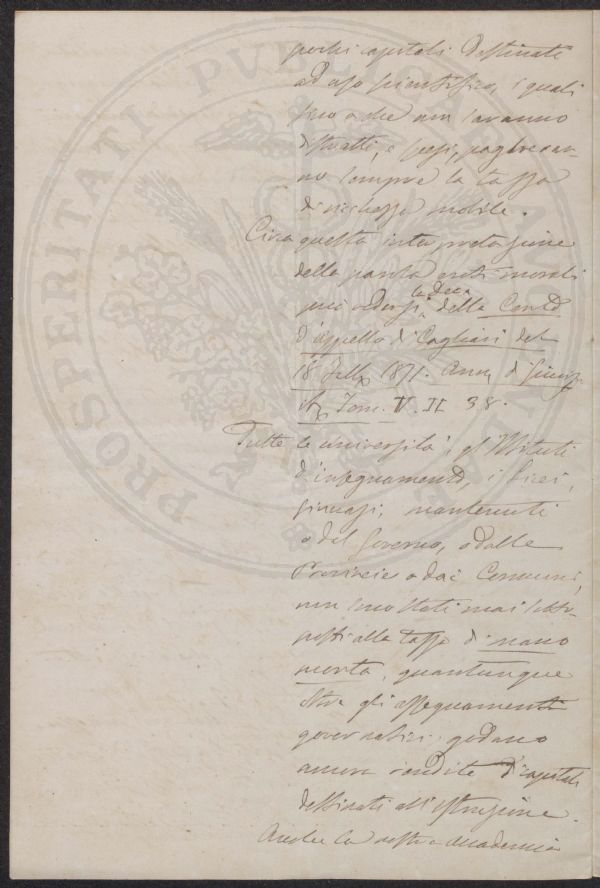 pochi capitali destinati
ad uso scientifico, i quali
fino a che non saranno
distratti, e spesi, pagheran-
no sempre la tassa
di richezza mobile.
Circa questa interpretazione
della parola enti morali
può vedersi la Dec. della Corte
d'appello di Cagliari del
18 1871. Ann. di Giuris.
Tom. V. II 38.
Tutte le università, gl'Istituti
d'insegnamento, i Licei,
ginnasi, mantenuti
o dal Governo, o dalle
Provincie o dai Comuni,
non sono stati mai sotto-
posti alla tassa di mano
morta, quantunque
oltre gli assegnamenti
governativi godano
ancora rendite di capitali
destinati all'istruzione.
Anche la nostra Accademia
PROSPERITATI PUBLICAE AUGENDAE